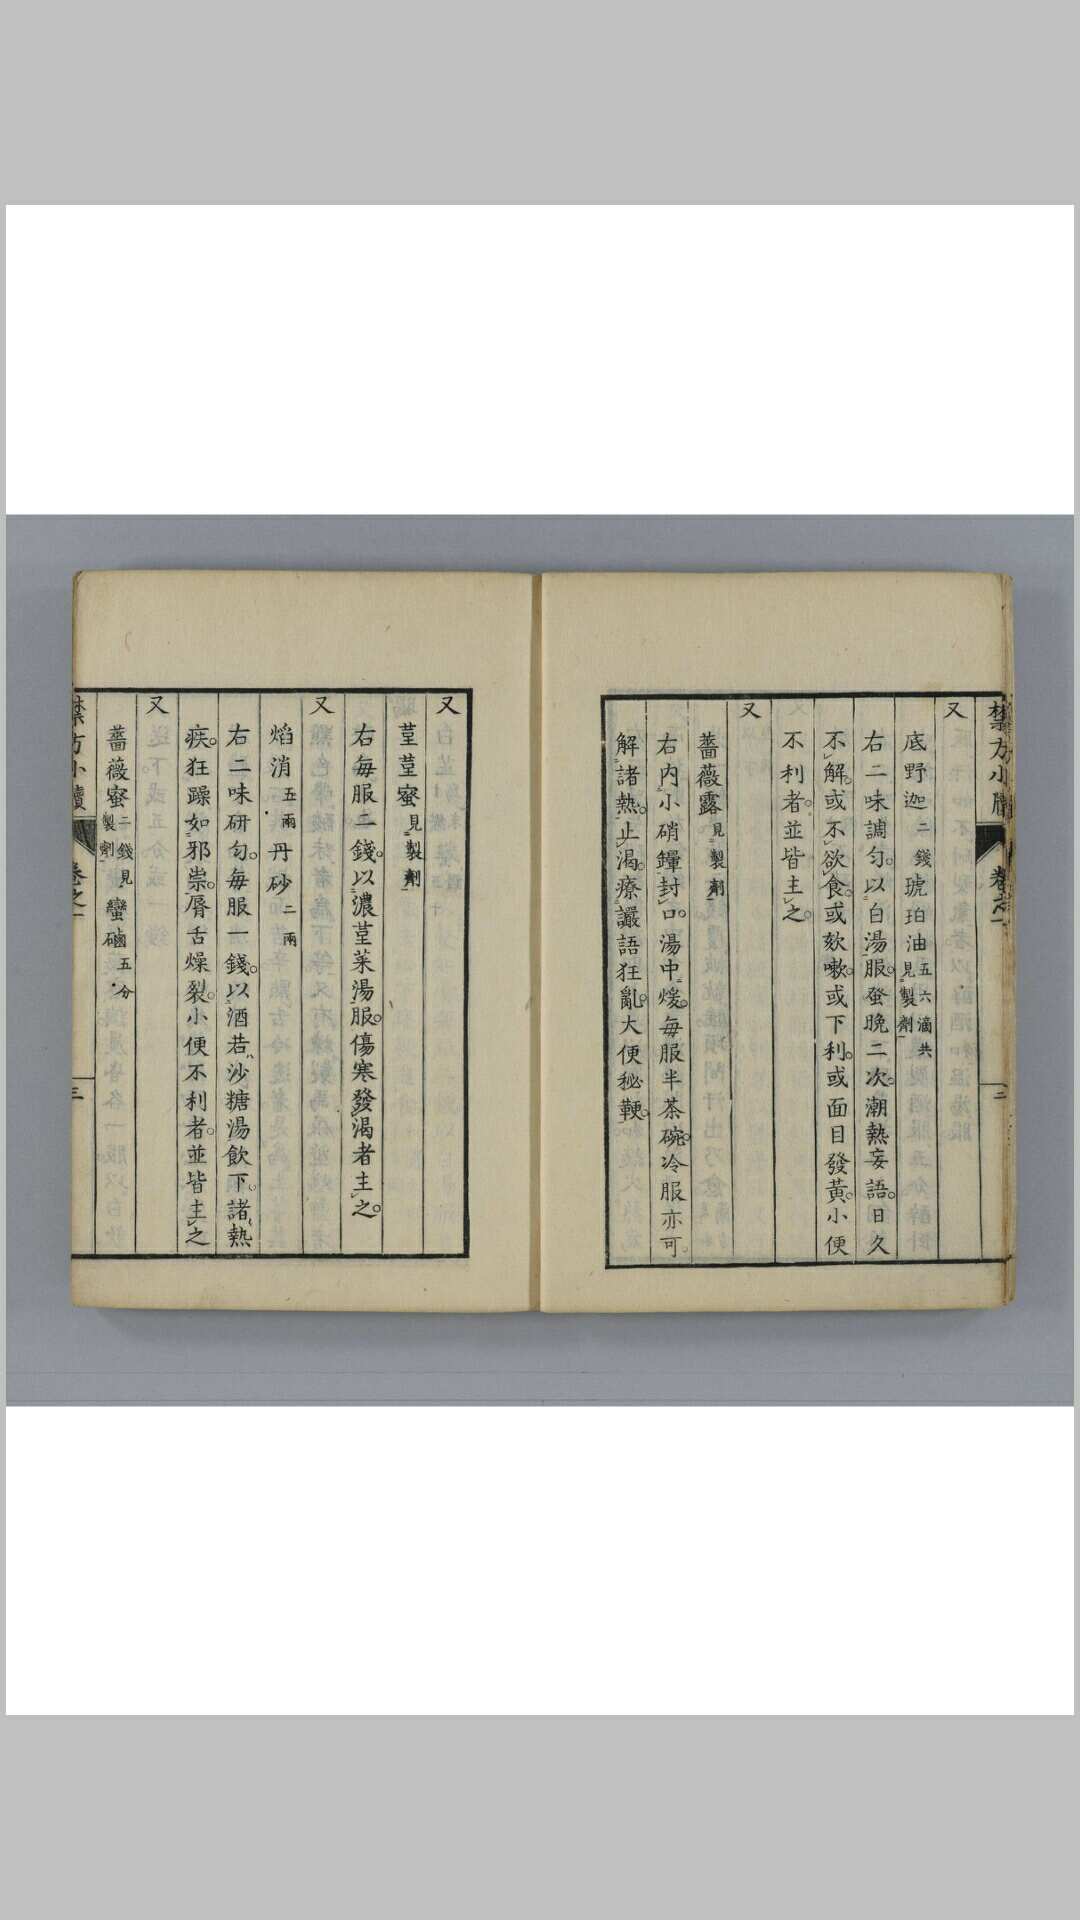 禁方小牘
卷之一
二
又
底野迦二錢琥珀油五六滴共見製劑
右二味調勻。以白湯服。蚤晚二次。潮熱妄語。日久
不解。或不欲食。或欬嗽。或下利。或面目發黃。小便
不利者。並皆主之。
又
薔薇露見製劑
右內小硝鑵。封口。湯中煖。每服半茶碗。冷服亦可。
解諸熱。止渴。療讝語狂亂。大便秘鞕。
又
菫菫蜜見製劑
右每服二錢。以濃菫菜湯服。傷寒發渴者主之。
又
焰消五兩丹砂二兩
右二味研勻。每服一錢。以酒若沙糖湯飲下。諸熱
疾。狂躁如邪祟。脣舌燥裂。小便不利者。並皆主之
又
薔薇蜜二錢見製劑蠻磠五分
禁方小牘
卷之一
三